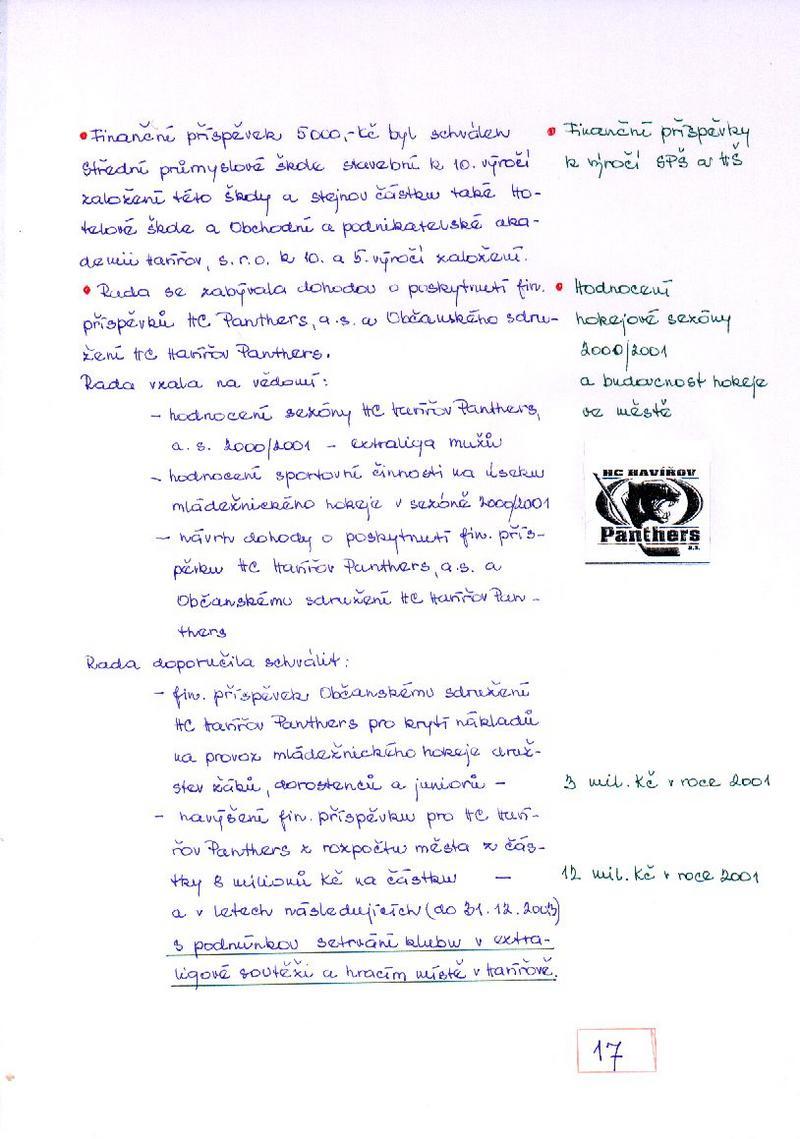 • Finanční příspěvek 5000,-Kč byl schválen
Střední průmyslové škole stavební k 10. výročí
založení této školy a stejnou částku také Ho-
telové škole a Obchodní a podnikatelské aka-
demii Havířov, s.r.o. k 10. a 5. výročí založení.
• Finanční příspěvky
k výročí SPŠ a HŠ
• Rada se zabývala dohodou o poskytnutí fin.
příspěvků HC Panthers, a.s. a Občanského sdru-
žení HC Havířov Panthers.
• Hodnocení
hokejové sezóny
2000/2001
a budoucnost hokeje
ve městě
Rada vzala na vědomí:
- hodnocení sezóny HC Havířov Panthers,
a. s. 2000/2001 - extraliga mužů
- hodnocení sportovní činnosti na úseku
mládežnického hokeje v sezóně 2000/2001
- návrh dohody o poskytnutí fin. přís-
pěvku HC Havířov Panthers, a.s. a
Občanskému sdružení HC Havířov Pan-
thers
HC HAVÍŘOV
Panthers
a.s.
Rada doporučila schválit:
- fin. příspěvek Občanskému sdružení
HC Havířov Panthers pro krytí nákladů
na provoz mládežnického hokeje druž-
stev žáků, dorostenců a juniorů -
3 mil. Kč v roce 2001
- navýšení fin. příspěvku pro HC Haví-
řov Panthers z rozpočtu města z čás-
tky 8 milionů Kč na částku -
12 mil. Kč v roce 2001
a v letech následujících (do 31.12.2003)
s podmínkou setrvání klubu v extra-
ligové soutěži a hracím místě v Havířově.
17